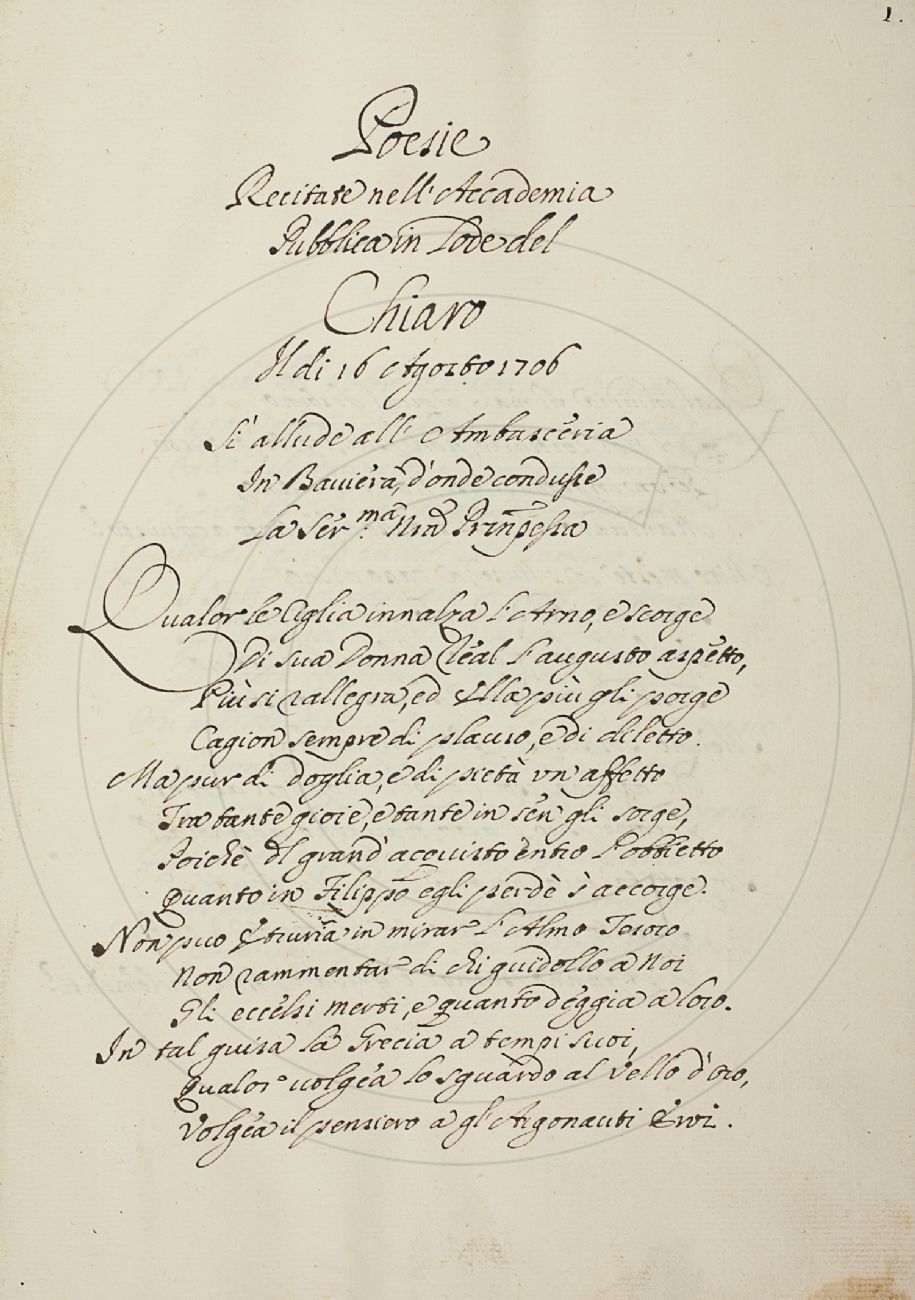 1.
Poesie
Recitate nell'Accademia
Pubblica in Lode del
Chiaro
Il di 16 Agosto 1706
Si allude all'Ambasceria
In Baviera, d'onde condusse
La Ser.ma Nrã Prinpessa
Qualor le Ciglia innalza l'Arno, e scorge
Di sua Donna Real l'augusto aspetto,
Più si rallegra, ed Ella più gli porge
Cagion sempre di plauso, e di diletto.
Ma pur di doglia, e di pietà vn affetto
Tra tante gioie, e tante in sen gli sorge,
Poichè Al grand'acquisto entro l'obbietto
Quanto in Filippo egli perdè s'accorge.
Non puo Etruria in mirar l'Almo Tesoro
Non rammentar di chi guidollo a Noi
Gli eccelsi merti, e quanto deggia a loro.
In tal guisa la Grecia a tempi suoi,
Qualor volgea lo sguardo al Vello d'oro,
Volgea il pensiero a gl'Argonauti Eroi.